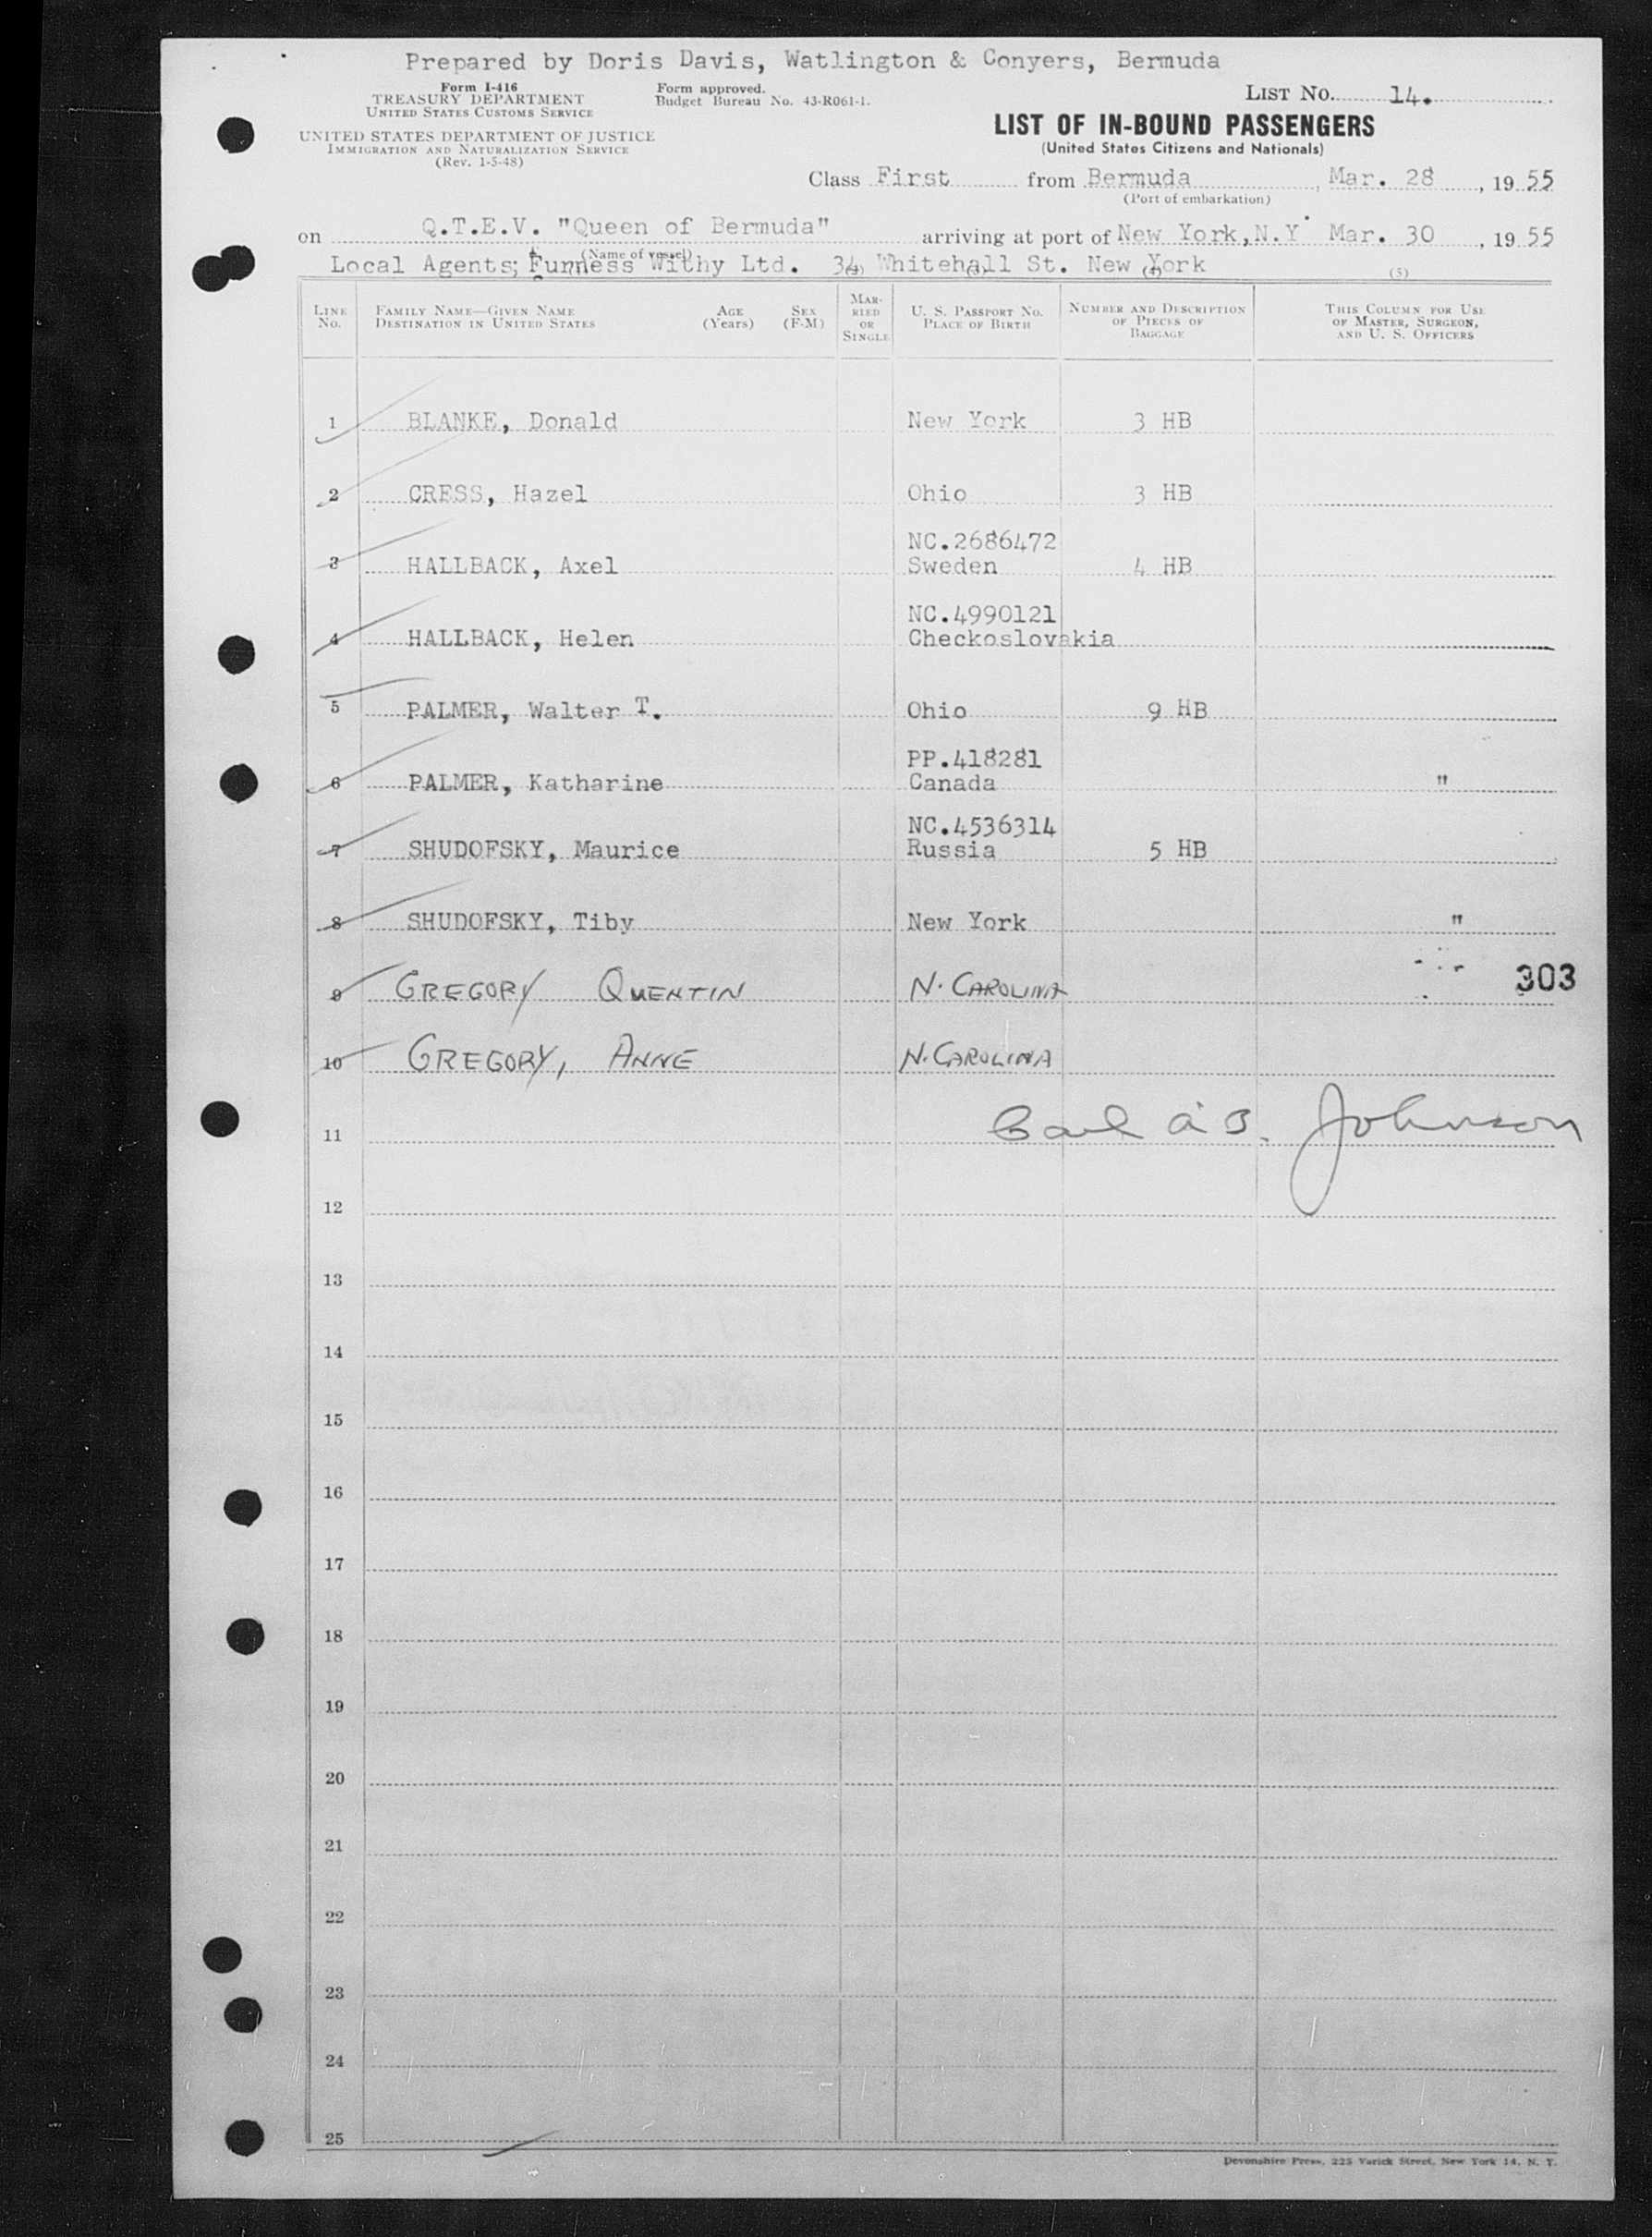 Prepared by Doris Davis, Watlington & Conyers, Bermuda
Form I-416
TREASURY DEPARTMENT
UNITED STATES CUSTOMS SERVICE
Form approved.
Budget Bureau No. 43-R061-1.
LIST NO. 14.
UNITED STATES DEPARTMENT OF JUSTICE
IMMIGRATION AND NATURALIZATION SERVICE
(Rev. 1-5-48)
LIST OF IN-BOUND PASSENGERS
(United States Citizens and Nationals)
Class First from Bermuda, Mar. 28, 1955
(Port of embarkation)
on Q.T.E.V. "Queen of Bermuda" arriving at port of New York, N.Y. Mar. 30, 1955
(Name of vessel)
Local Agents; Furness Withy Ltd. 34 Whitehall St. New York
(2) (3) (4) (5)
LINE NO.
FAMILY NAME—GIVEN NAME
DESTINATION IN UNITED STATES
AGE (Years)
SEX (F-M)
MARRIED OR SINGLE
U. S. PASSPORT NO.
PLACE OF BIRTH
NUMBER AND DESCRIPTION OF PIECES OF BAGGAGE
THIS COLUMN FOR USE OF MASTER, SURGEON, AND U. S. OFFICERS
1 BLANKE, Donald New York 3 HB
2 CRESS, Hazel Ohio 3 HB
NC.2686472
3 HALLBACK, Axel Sweden 4 HB
NC.4990121
4 HALLBACK, Helen Checkoslovakia
5 PALMER, Walter T. Ohio 9 HB
PP.418281
6 PALMER, Katharine Canada "
NC.4536314
7 SHUDOFSKY, Maurice Russia 5 HB
8 SHUDOFSKY, Tiby New York "
303
9 GREGORY QUENTIN N. CAROLINA
10 GREGORY, ANNE N. CAROLINA
11 Carl A B. Johnson
12
13
14
15
16
17
18
19
20
21
22
23
24
25
Devonshire Press, 225 Varick Street, New York 14, N. Y.